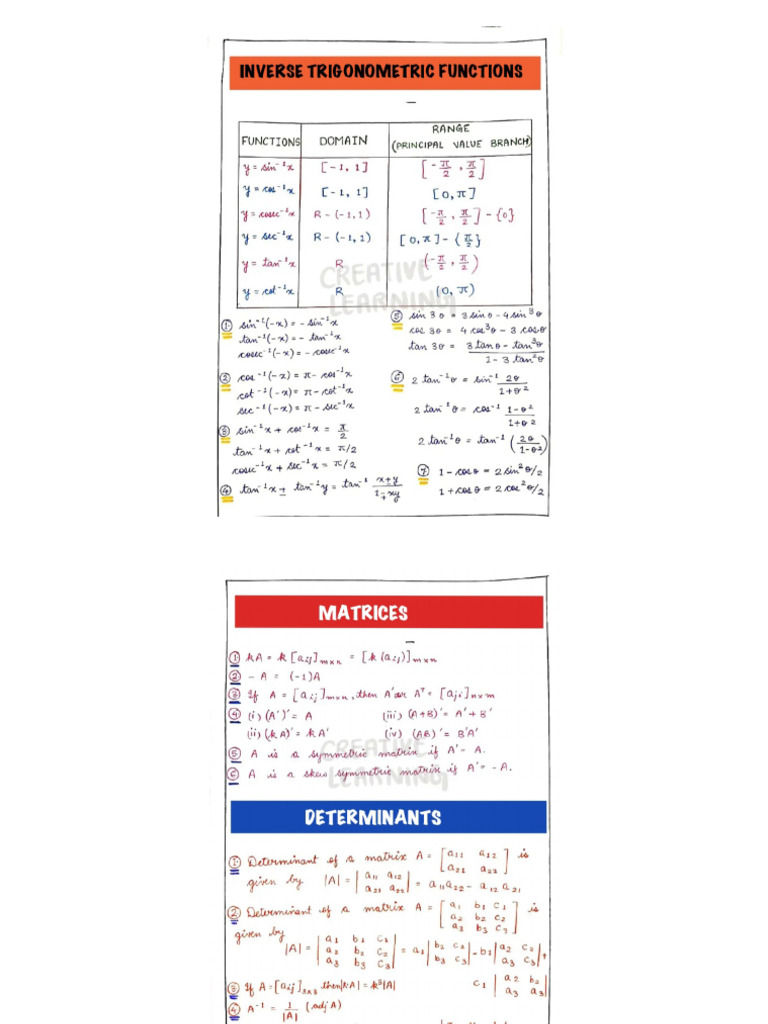 INVERSE TRIGONOMETRIC FUNCTIONS
FUNCTIONS DOMAIN RANGE (PRINCIPAL VALUE BRANCH)
y = sin⁻¹x [-1, 1] [-π/2, π/2]
y = cos⁻¹x [-1, 1] [0, π]
y = cosec⁻¹x R - (-1, 1) [-π/2, π/2] - {0}
y = sec⁻¹x R - (-1, 1) [0, π] - {π/2}
y = tan⁻¹x R (-π/2, π/2)
y = cot⁻¹x R (0, π)
CREATIVE
LEARNING
① sin⁻¹(-x) = - sin⁻¹x
tan⁻¹(-x) = - tan⁻¹x
cosec⁻¹(-x) = - cosec⁻¹x
② cos⁻¹(-x) = π - cos⁻¹x
cot⁻¹(-x) = π - cot⁻¹x
sec⁻¹(-x) = π - sec⁻¹x
③ sin⁻¹x + cos⁻¹x = π/2
tan⁻¹x + cot⁻¹x = π/2
cosec⁻¹x + sec⁻¹x = π/2
④ tan⁻¹x ± tan⁻¹y = tan⁻¹ (x±y)/(1∓xy)
⑤ sin 3θ = 3 sin θ - 4 sin³θ
cos 3θ = 4 cos³θ - 3 cos θ
tan 3θ = (3 tan θ - tan³θ)/(1 - 3 tan²θ)
⑥ 2 tan⁻¹θ = sin⁻¹ 2θ/(1+θ²)
2 tan⁻¹θ = cos⁻¹ (1-θ²)/(1+θ²)
2 tan⁻¹θ = tan⁻¹ (2θ/(1-θ²))
⑦ 1 - cos θ = 2 sin²θ/2
1 + cos θ = 2 cos²θ/2
MATRICES
① kA = k[aij]m×n = [k(aij)]m×n
② - A = (-1)A
③ If A = [aij]m×n, then A' or Aᵀ = [aji]n×m
④ (i) (A')' = A (iii) (A+B)' = A' + B'
(ii) (kA)' = kA' (iv) (AB)' = B'A'
⑤ A is a symmetric matrix if A' = A.
⑥ A is a skew symmetric matrix if A' = -A.
CREATIVE
LEARNING
DETERMINANTS
① Determinant of a matrix A = [a11 a12; a21 a22] is
given by |A| = |a11 a12; a21 a22| = a11a22 - a12 a21
② Determinant of a matrix A = [a1 b1 c1; a2 b2 c2; a3 b3 c3] is
given by
|A| = |a1 b1 c1; a2 b2 c2; a3 b3 c3| = a1|b2 c2; b3 c3| - b1|a2 c2; a3 c3| +
c1 |a2 b2; a3 a3|
③ If A = [aij]3×3 then |kA| = k³|A|
④ A⁻¹ = 1/|A| (adj A)